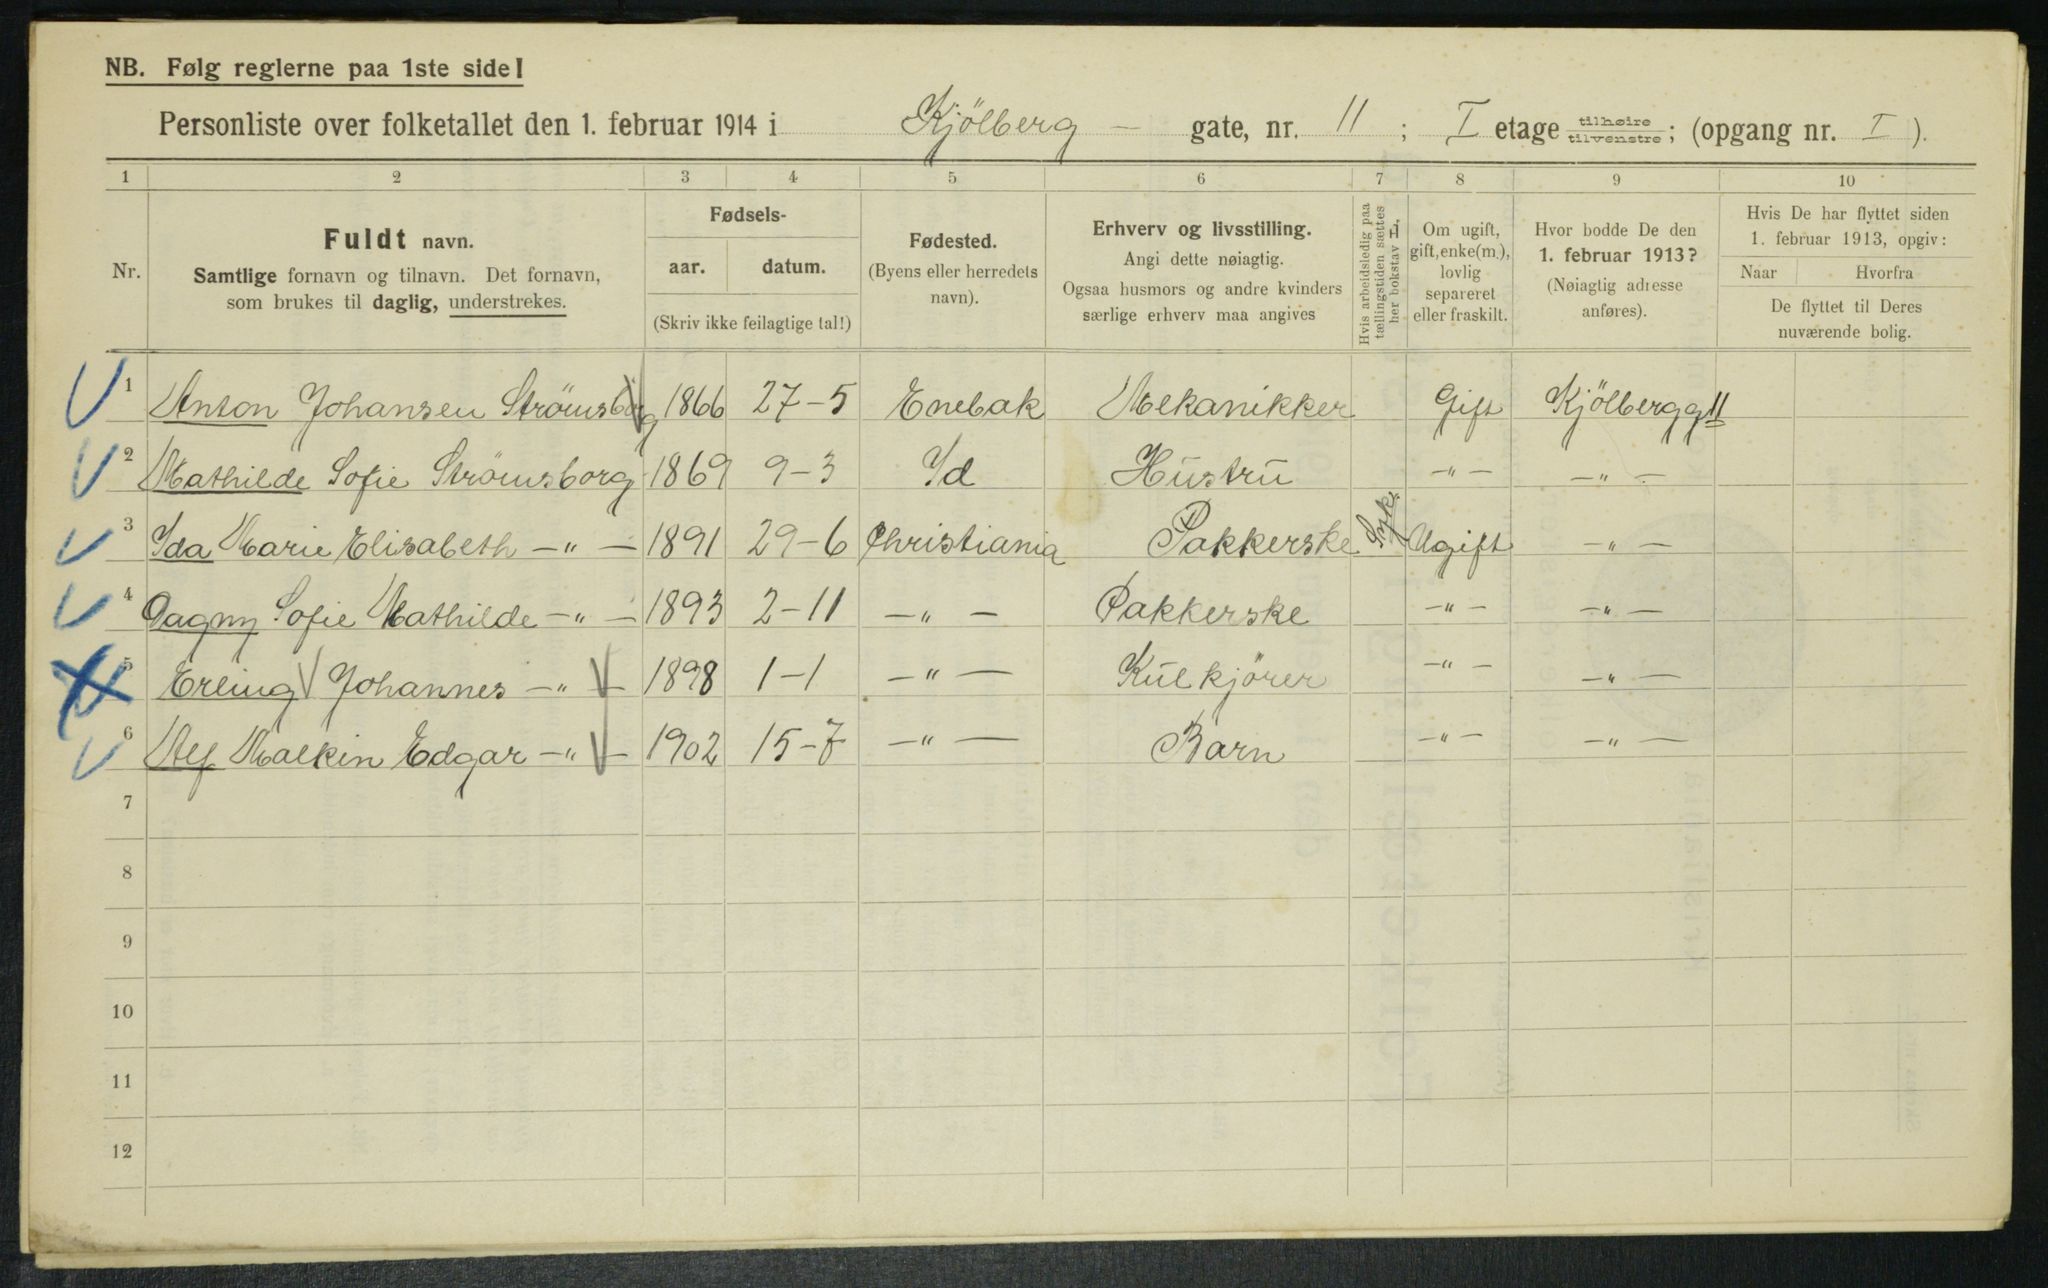 NB. Følg reglerne paa 1ste side!
Personliste over folketallet den 1. februar 1914 i Kjölberg – gate, nr. 11; I etage tilhøire / tilvenstre; (opgang nr. I).
1 2 3 4 5 6 7 8 9 10
Nr.
Fuldt navn.
Samtlige fornavn og tilnavn. Det fornavn,
som brukes til daglig, understrekes.
Fødsels-
aar. datum.
(Skriv ikke feilagtige tal!)
Fødested.
(Byens eller herredets
navn).
Erhverv og livsstilling.
Angi dette nøiagtig.
Ogsaa husmors og andre kvinders
særlige erhverv maa angives
Hvis arbeidsledig paa
tællingstiden sættes
her bokstav L,
Om ugift,
gift, enke(m.),
lovlig
separeret
eller fraskilt.
Hvor bodde De den
1. februar 1913?
(Nøiagtig adresse
anføres).
Hvis De har flyttet siden
1. februar 1913, opgiv:
Naar Hvorfra
De flyttet til Deres
nuværende bolig.
1 Anton Johansen Strömsborg 1866 27-5 Enebak Mekanikker Gift Kjölbergg 11
2 Mathilde Sofie Strömsborg 1869 9-3 Id Hustru -"- -"-
3 Ida Marie Elisabeth -"- 1891 29-6 Christiania Pakkerske Syk. Ugift -"-
4 Dagny Sofie Mathilde -"- 1893 2-11 -"- Pakkerske -"- -"-
5 Erling Johannes -"- 1898 1-1 -"- Kulkjörer -"- -"-
6 Alf Malkin Edgar -"- 1902 15-7 -"- Barn -"- -"-
7
8
9
10
11
12